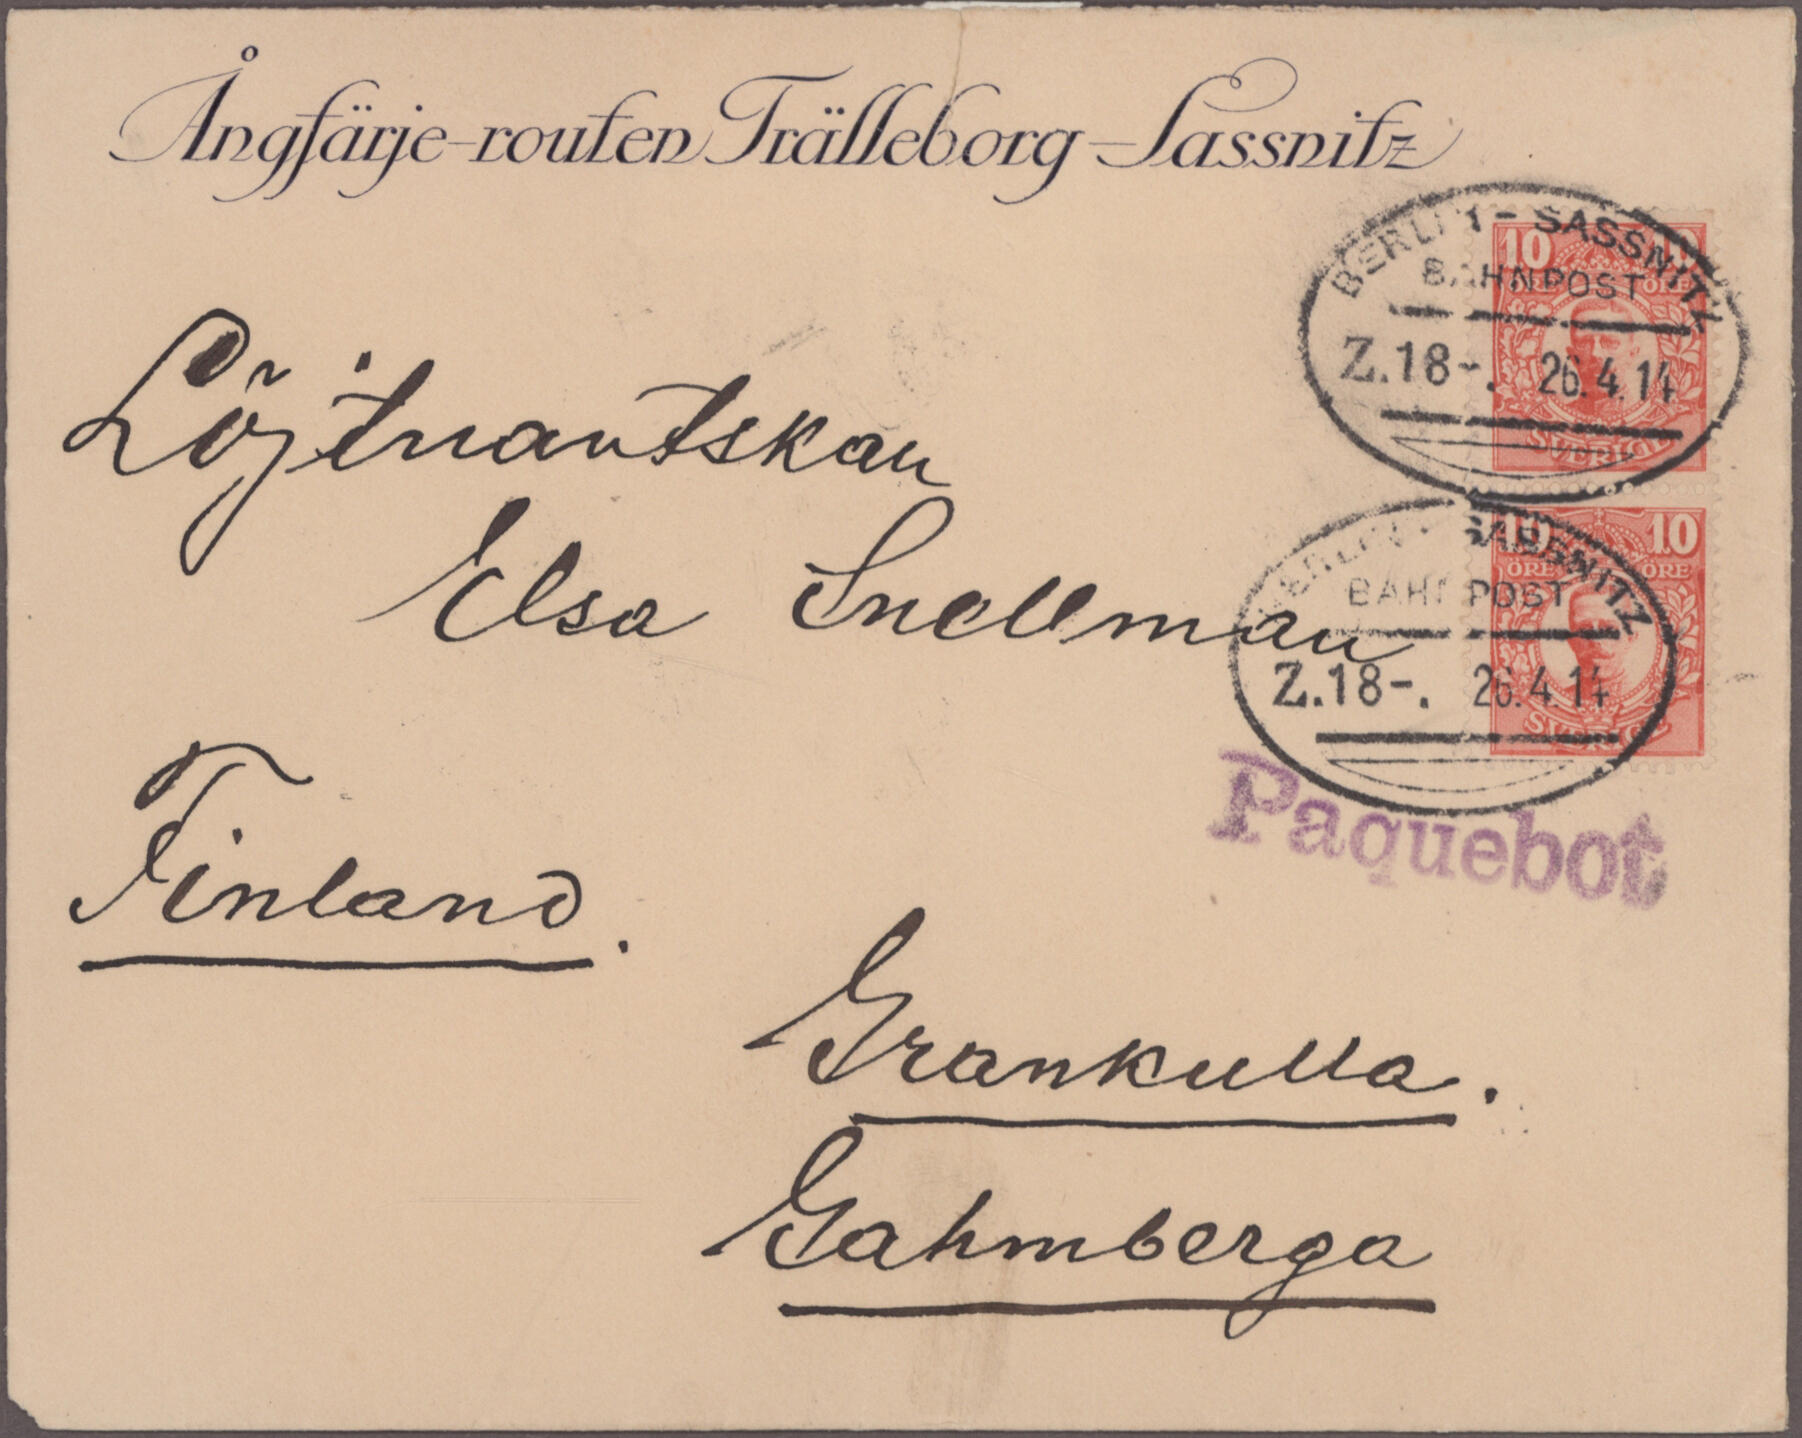 Ångfärje-routen Trälleborg-Sassnitz
BERLIN - SASSNITZ
BAHNPOST
Z.18-. 26.4.14
10 10
ÖRE
SVERIGE
Löjtnantskan
Elsa Snellman
BERLIN - SASSNITZ
BAHNPOST
Z.18-. 26.4.14
10 10
ÖRE ÖRE
SVERIGE
Paquebot
Finland.
Grankulla.
Gahmberga